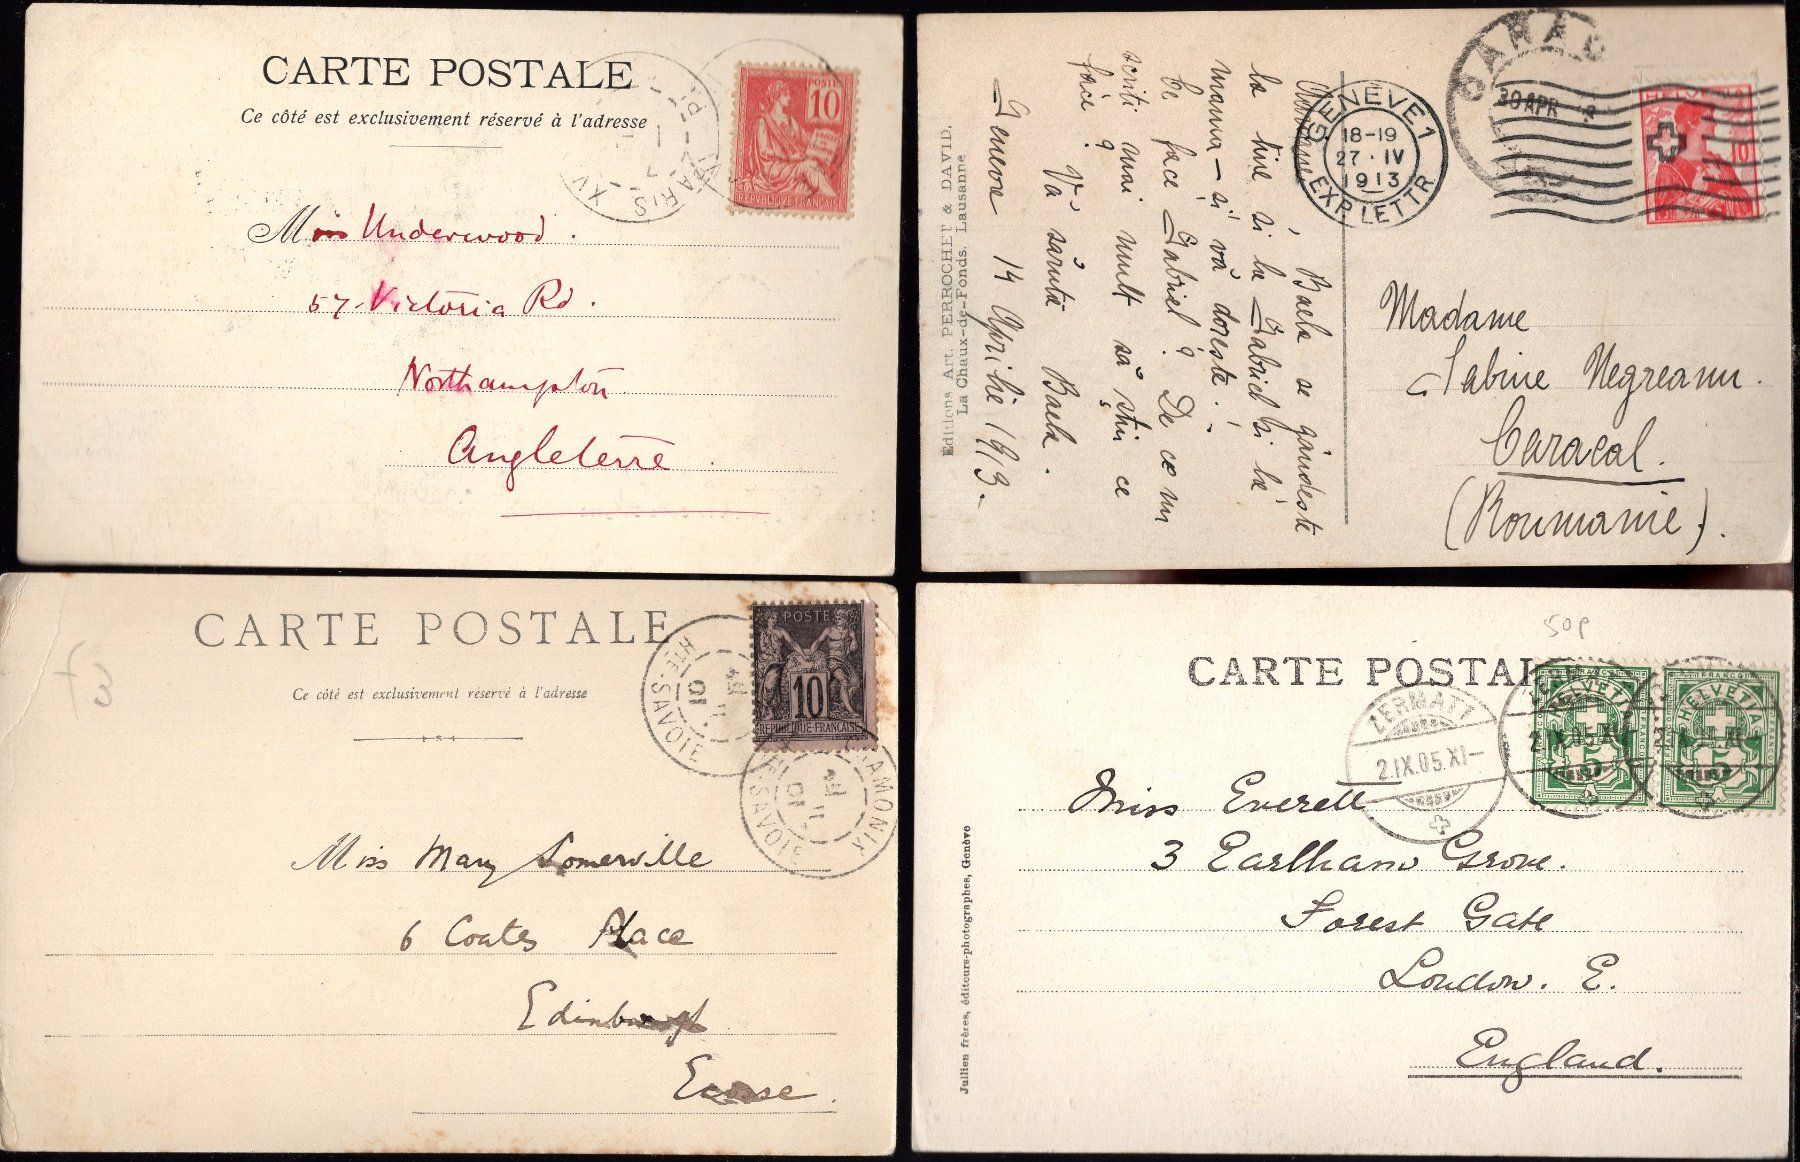 CARTE POSTALE
Ce côté est exclusivement réservé à l'adresse
POSTES
10
REPUBLIQUE FRANÇAISE
PARIS
XV
Miss Underwood.
57 Victoria Rd.
Northampton
Angleterre
Baela se gândeste
la tine si la Gabriel si la
mama - si vă doreste.
Ce face Gabriel? De ce nu
scriti mai mult să știu ce
face?
Vă sărută Baela.
Geneva 14 Aprilie 1913.
Editions Art. PERROCHET & DAVID.
La Chaux-de-Fonds. Lausanne
GENÈVE 1
18-19
27·IV
1913
EXP. LETTR
30 APR
HELVETIA
10
Madame
Sabine Negreanu.
Caracal.
(Roumanie).
CARTE POSTALE
Ce côté est exclusivement réservé à l'adresse
POSTE
10
REPUBLIQUE-FRANÇAISE
HTE-SAVOIE
01
CHAMONIX
HTE-SAVOIE
01
Miss Mary Somerville
6 Coates Place
Edinburgh
Ecosse.
50p
CARTE POSTAL
HELVETIA
5
HELVETIA
5
ZERMATT
2.IX.05.XI-
2.IX.05.XI
Miss Everett
3 Earlham Grove.
Forest Gate
London. E.
England.
Jullien frères, éditeurs-photographes, Genève